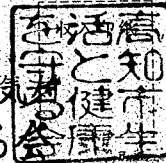 高知市生
活と健康
を守る会
気
る